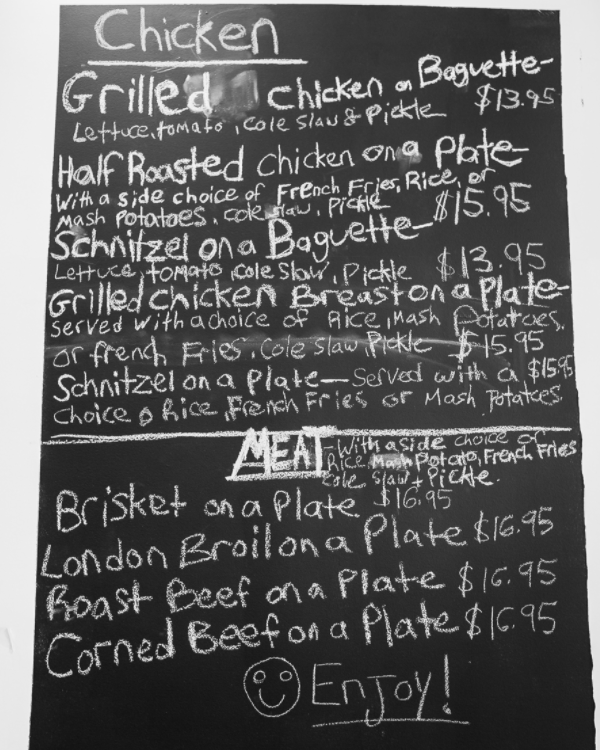 Chicken
Grilled chicken on Baguette-
$13.95
Lettuce, tomato, Cole Slaw & Pickle
Half Roasted Chicken on a Plate-
With a side choice of French Fries, Rice, or
Mash Potatoes, Cole slaw, Pickle $15.95
Schnitzel on a Baguette-
Lettuce, tomato, Cole Slaw, Pickle $13.95
Grilled Chicken Breast on a Plate-
served with a choice of Rice, Mash Potatoes,
or french Fries, Cole slaw, Pickle $15.95
Schnitzel on a Plate- Served with a $15.95
Choice o Rice, French Fries or Mash Potatoes
MEAT - With a side choice of
Rice, Mash Potato, French Fries
Cole Slaw + Pickle.
Brisket on a Plate $16.95
London Broil on a Plate $16.95
Roast Beef on a Plate $16.95
Corned Beef on a Plate $16.95
Enjoy!